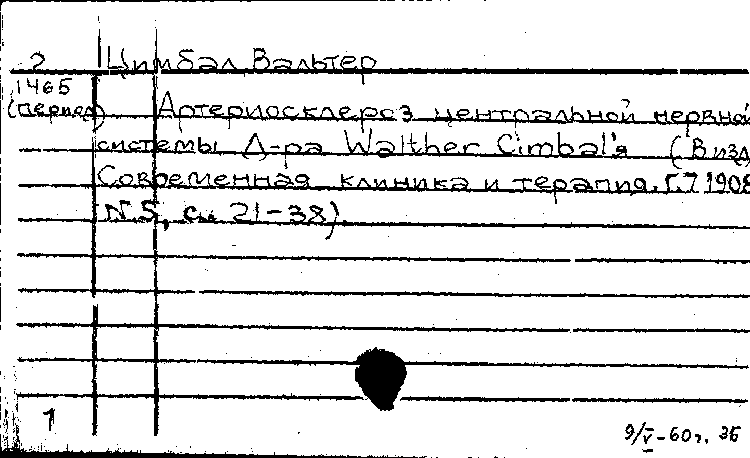 2 Цимбал, Вальтер
1465
(период) Артериосклероз центральной нервной
системы Д-ра Walther Cimbal'я (В изд.
Современная клиника и терапия. Г.7 1908
N 5, см 21-38).
1
9/V-60г. ЗБ